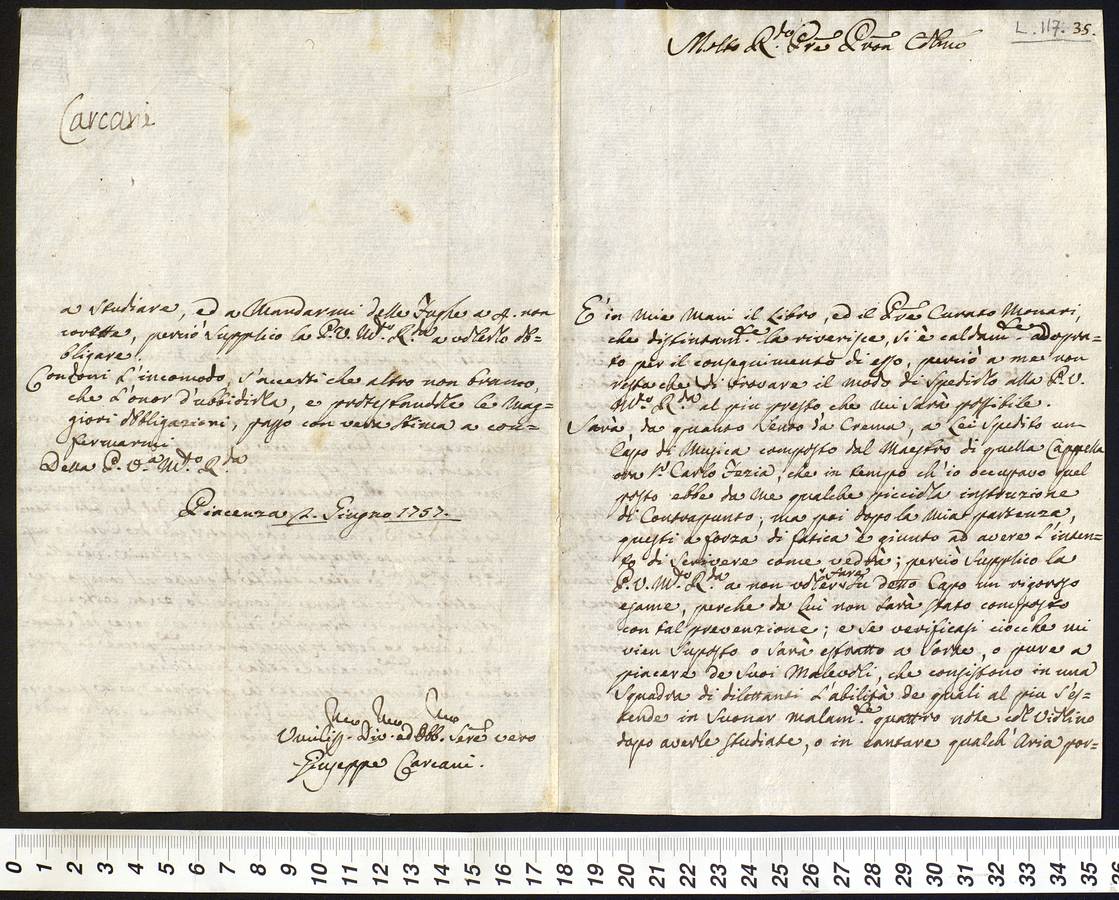 L. 117. 35.
Molto R.do Pre Pron Colmo
È in mie Mani il Libro, ed il Pre Curato Monari,
che distintam.te la riverisce, si è caldam.te adopra=
to per il conseguimento di esso, perciò a me non
resta che di trovare il modo di spedirlo alla P. V.
M.to R.da al più presto che mi sarà possibile.
Sarà, da quanto sento da Crema, a Lei spedito un
Capo di Musica composto dal Maestro di quella Cappella
ora S.r Carlo Fezia, che in tempo ch'io occupavo quel
posto ebbe da me qualche picciola instruzione
di Contrapunto; ma poi dopo la mia partenza,
questi a forza di fatica è giunto ad avere l'inten=
to di scrivere come vedrà; perciò supplico la
P. V. M.to R.da a non voler fare su detto Capo un rigorozo
esame, perche da lui non sarà stato composto
con tal prevenzione; e se verificasi ciocche mi
vien suposto o sarà estratto a sorte, o pure a
piacere de suoi Malevoli, che consistono in una
squadra di dilettanti l'abilità de quali al più s'es=
tende in suonar malam.te quattro note col violino
dopo averle studiate, o in cantare qualch'Aria por=
Carcani
a studiare, ed a Mandarmi delle Fughe a 4. non
corette, perciò supplico la P. V. M.to R.da a volerlo ob=
bligare.
Condoni l'incomodo, s'accerti che altro non bramo,
che l'onor d'ubbidirla, e protestandole le mag=
giori obbligazioni, passo con vera stima a con=
fermarmi
Della P. V.a M.to R.da
Piacenza 2. Giugno 1757.
Umiliss.mo Div.mo ed Obb.mo Serre vero
Giuseppe Carcani.
0 1 2 3 4 5 6 7 8 9 10 11 12 13 14 15 16 17 18 19 20 21 22 23 24 25 26 27 28 29 30 31 32 33 34 35 36